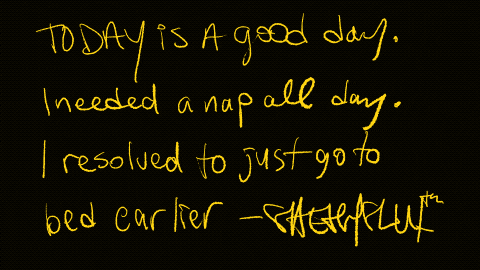 TODAY is A good day.
I needed a nap all day.
I resolved to just go to
bed earlier –